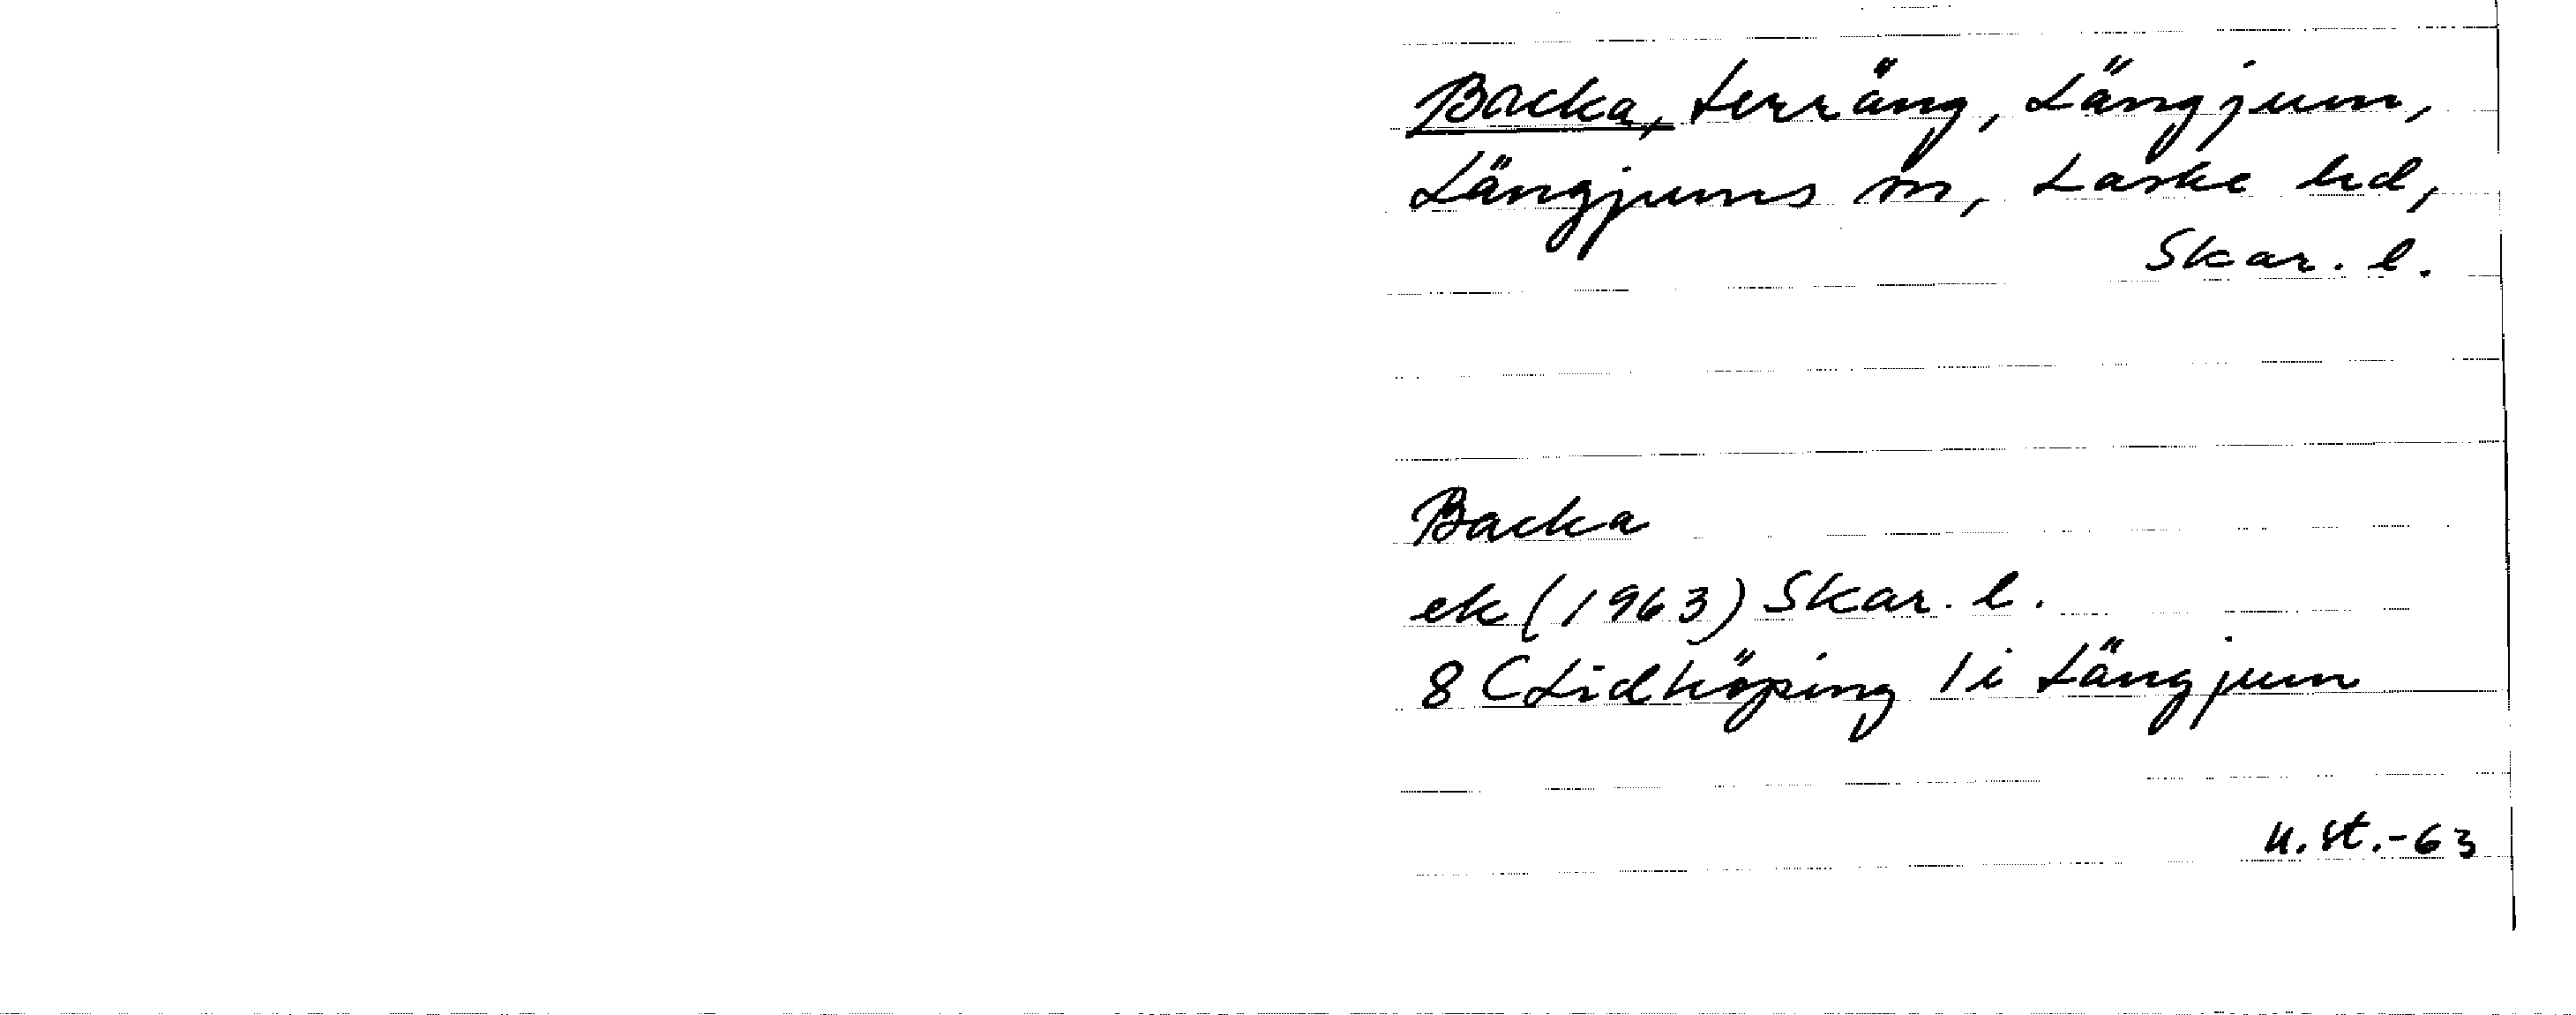 Backa, terräng, Längjum,
Längjums sn, Laske hd,
Skar. l.
Backa
ek (1963) Skar. l.
8 C Lidköping 1 i Längjum
u.st.-63